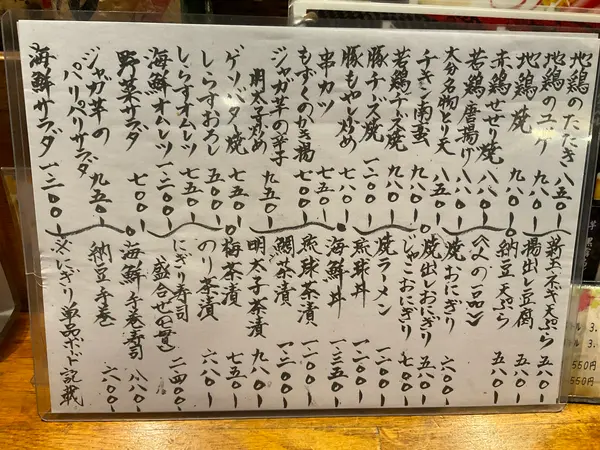 地鶏のたたき 八五〇
地鶏のユッケ 九八〇
地鶏焼 九八〇
赤鶏せせり焼 八八〇
若鶏唐揚げ 八八〇
大分名物とり天
チキン南蛮
若鶏チーズ焼 九八〇
豚チーズ焼 一二〇〇
豚もやし炒め 七八〇
串カツ 五五〇
もずくのかき揚 七五〇
ジャガ芋の辛子
明太子炒め 九五〇
ゲソバター焼 七五〇
しらすおろし 五五〇
しらすオムレツ 七五〇
海鮮オムレツ 一二〇〇
野菜サラダ 七〇〇
ジャガ芋の
パリパリサラダ 九五〇
海鮮サラダ 一三〇〇
新玉ネギ天ぷら 五五〇
揚出し豆腐 五五〇
納豆天ぷら 五八〇
〈〆の一品〉
焼おにぎり 六〇〇
焼出しおにぎり 五八〇
じゃこおにぎり 七〇〇
焼ラーメン
琉球丼 一二〇〇
海鮮丼 一三五〇
琉球茶漬 一二〇〇
鯛茶漬 一二〇〇
明太子茶漬 九八〇
梅茶漬 七五〇
のり茶漬 六八〇
にぎり寿司
盛合せ(七貫) 二四〇〇
海鮮手巻寿司 八八〇
納豆手巻 六八〇
※にぎり単品ボード記載
550円
550円